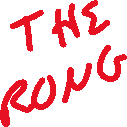 THE
RONG